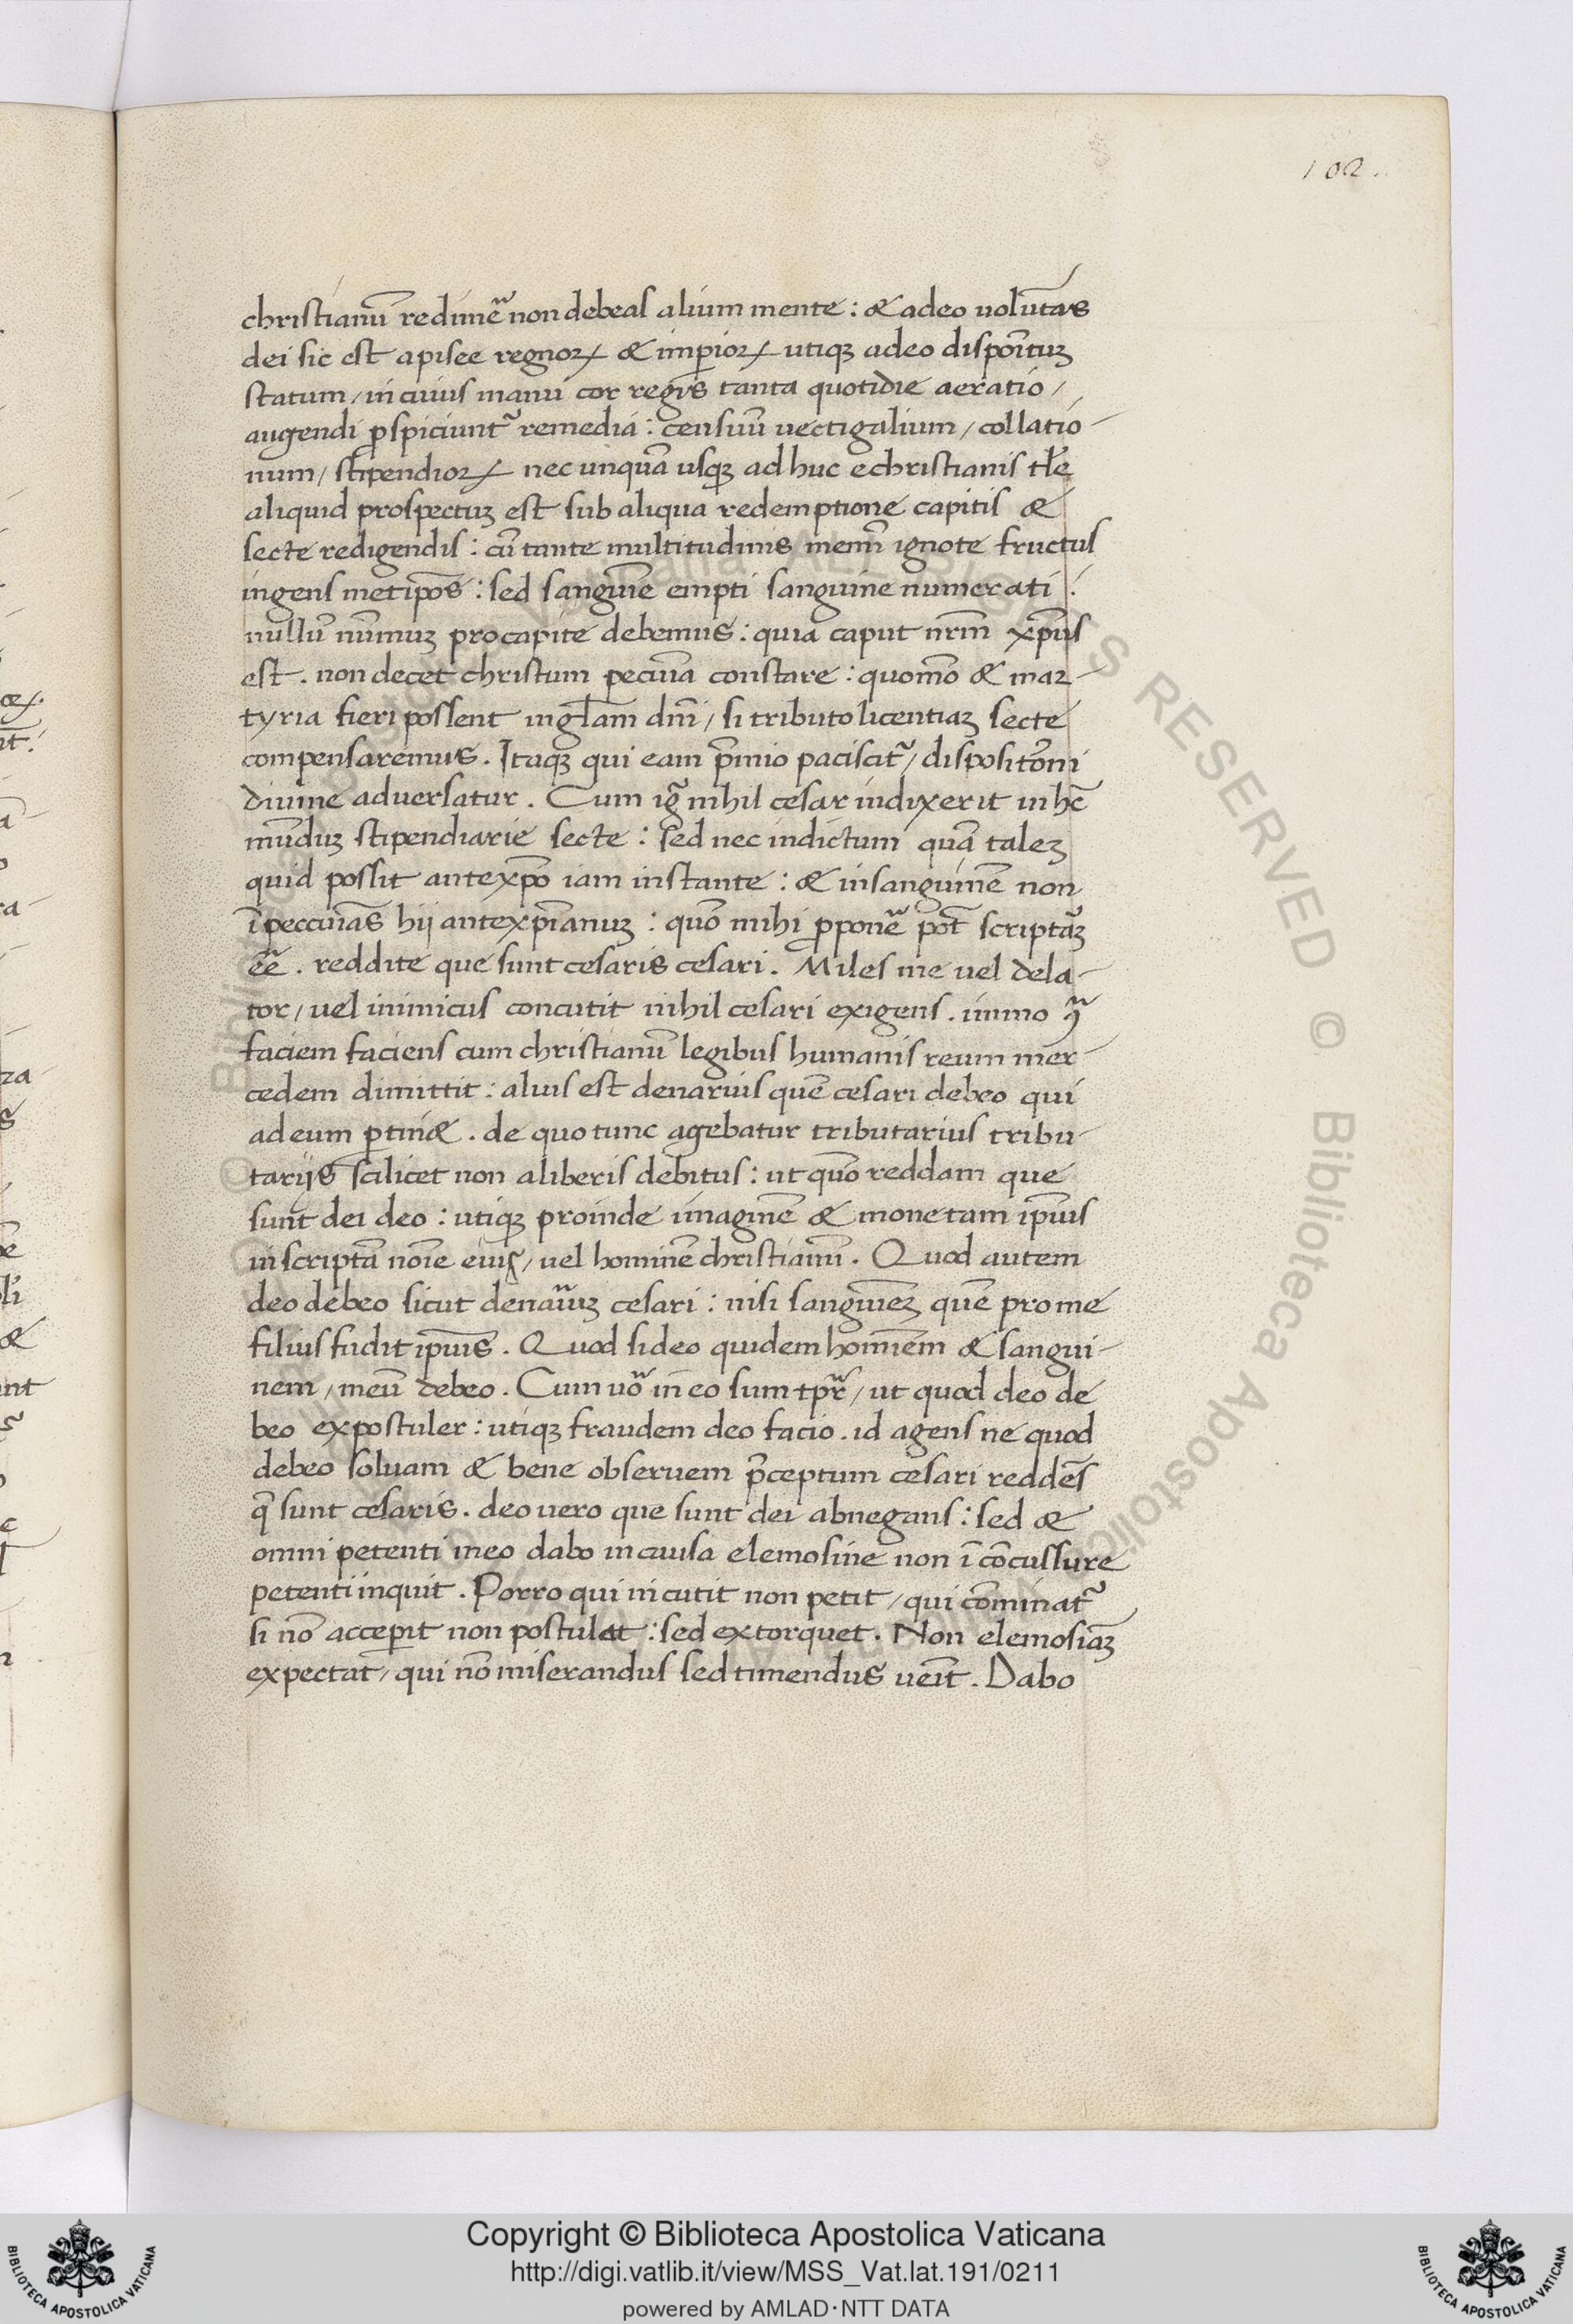 102.
christianū redimē non debeas alium mente : & adeo uolūtas
dei sic est apisce regnoꝝ & impioꝝ utiqꝫ adeo disponītuꝫ
statum / in cuius manu cor regis tanta quotidie aeratio /
augendi ꝓspiciunt᷑ remedia : censuū vectigalium / collatio-
num / stipendioꝝ nec unquā usqꝫ ad huc e christianis tłe
aliquid prospectuꝫ est sub aliqua redemptione capitis &
secte redigendis : cū tante multitudinis nemī ignote fructus
ingens metipōs : sed sanguīe empti sanguine numerati :
nullū nūmuꝫ pro capite debemus : quia caput nr̄m xp̄us
est . non decet christum pecuīa constare : quom̄o & mar-
tyria fieri possent in gl̄am dn̄i / si tributo licentiaꝫ secte
compensaremus . Itaqꝫ qui eam p̄mio paciscit᷑ / dispositōni
diuine aduersatur . Cum ig᷑ nihil cesar indixerit in hc̄
mūduꝫ stipendiarie secte : sed nec indictum quā taleꝫ
quid possit antexp̄o iam instante : & in sanguinē non
ī peccuīas hij antexp̄ianuꝫ : quō mihi ꝓponē pōt scriptāꝫ
eē . reddite que sunt cesaris cesari . Miles me uel dela-
tor / uel inimicus concutit nihil cesari exigens . immo ꝯ᷑
faciem faciens cum christianū legibus humanis reum mer-
cedem dimittit : alius est denarius quē cesari debeo qui
ad eum ꝑtin& . de quo tunc agebatur tributarius tribu-
tarijs scilicet non a liberis debitus : ut quō reddam que
sunt dei deo : utiqꝫ proinde imaginē & monetam ip̄ius
inscriptā noīe eius / uel hominē christianū . Quod autem
deo debeo sicut denaīuꝫ cesari : nisi sanguīeꝫ quē pro me
filius fudit ip̄ius . Quod si deo quidem homīem & sangui-
nem / meū debeo . Cum uō in eo sum tp̄r / ut quod deo de
beo expostuler : utiqꝫ fraudem deo facio . id agens ne quod
debeo soluam & bene obseruem p̄ceptum cesari reddēs
q̄ sunt cesaris . deo uero que sunt dei abnegans : sed &
omni petenti meo dabo in causa elemosine non ī cōcussure
petenti inquit . Porro qui incutit non petit / qui cōminat᷑
si nō acceperit non postulat : sed extorquet . Non elemosiāꝫ
expectat / qui nō miserandus sed timendus ueīt . Dabo
Copyright © Biblioteca Apostolica Vaticana
http://digi.vatlib.it/view/MSS_Vat.lat.191/0211
powered by AMLAD·NTT DATA